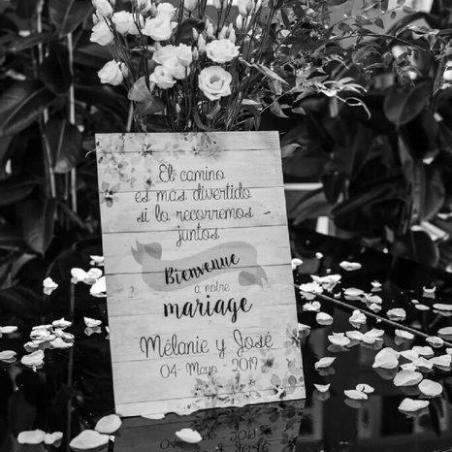 El camino
es mas divertido
si lo recorremos
juntos
Bienvenue
à notre
mariage
Mélanie y José
04 - Mayo - 2019